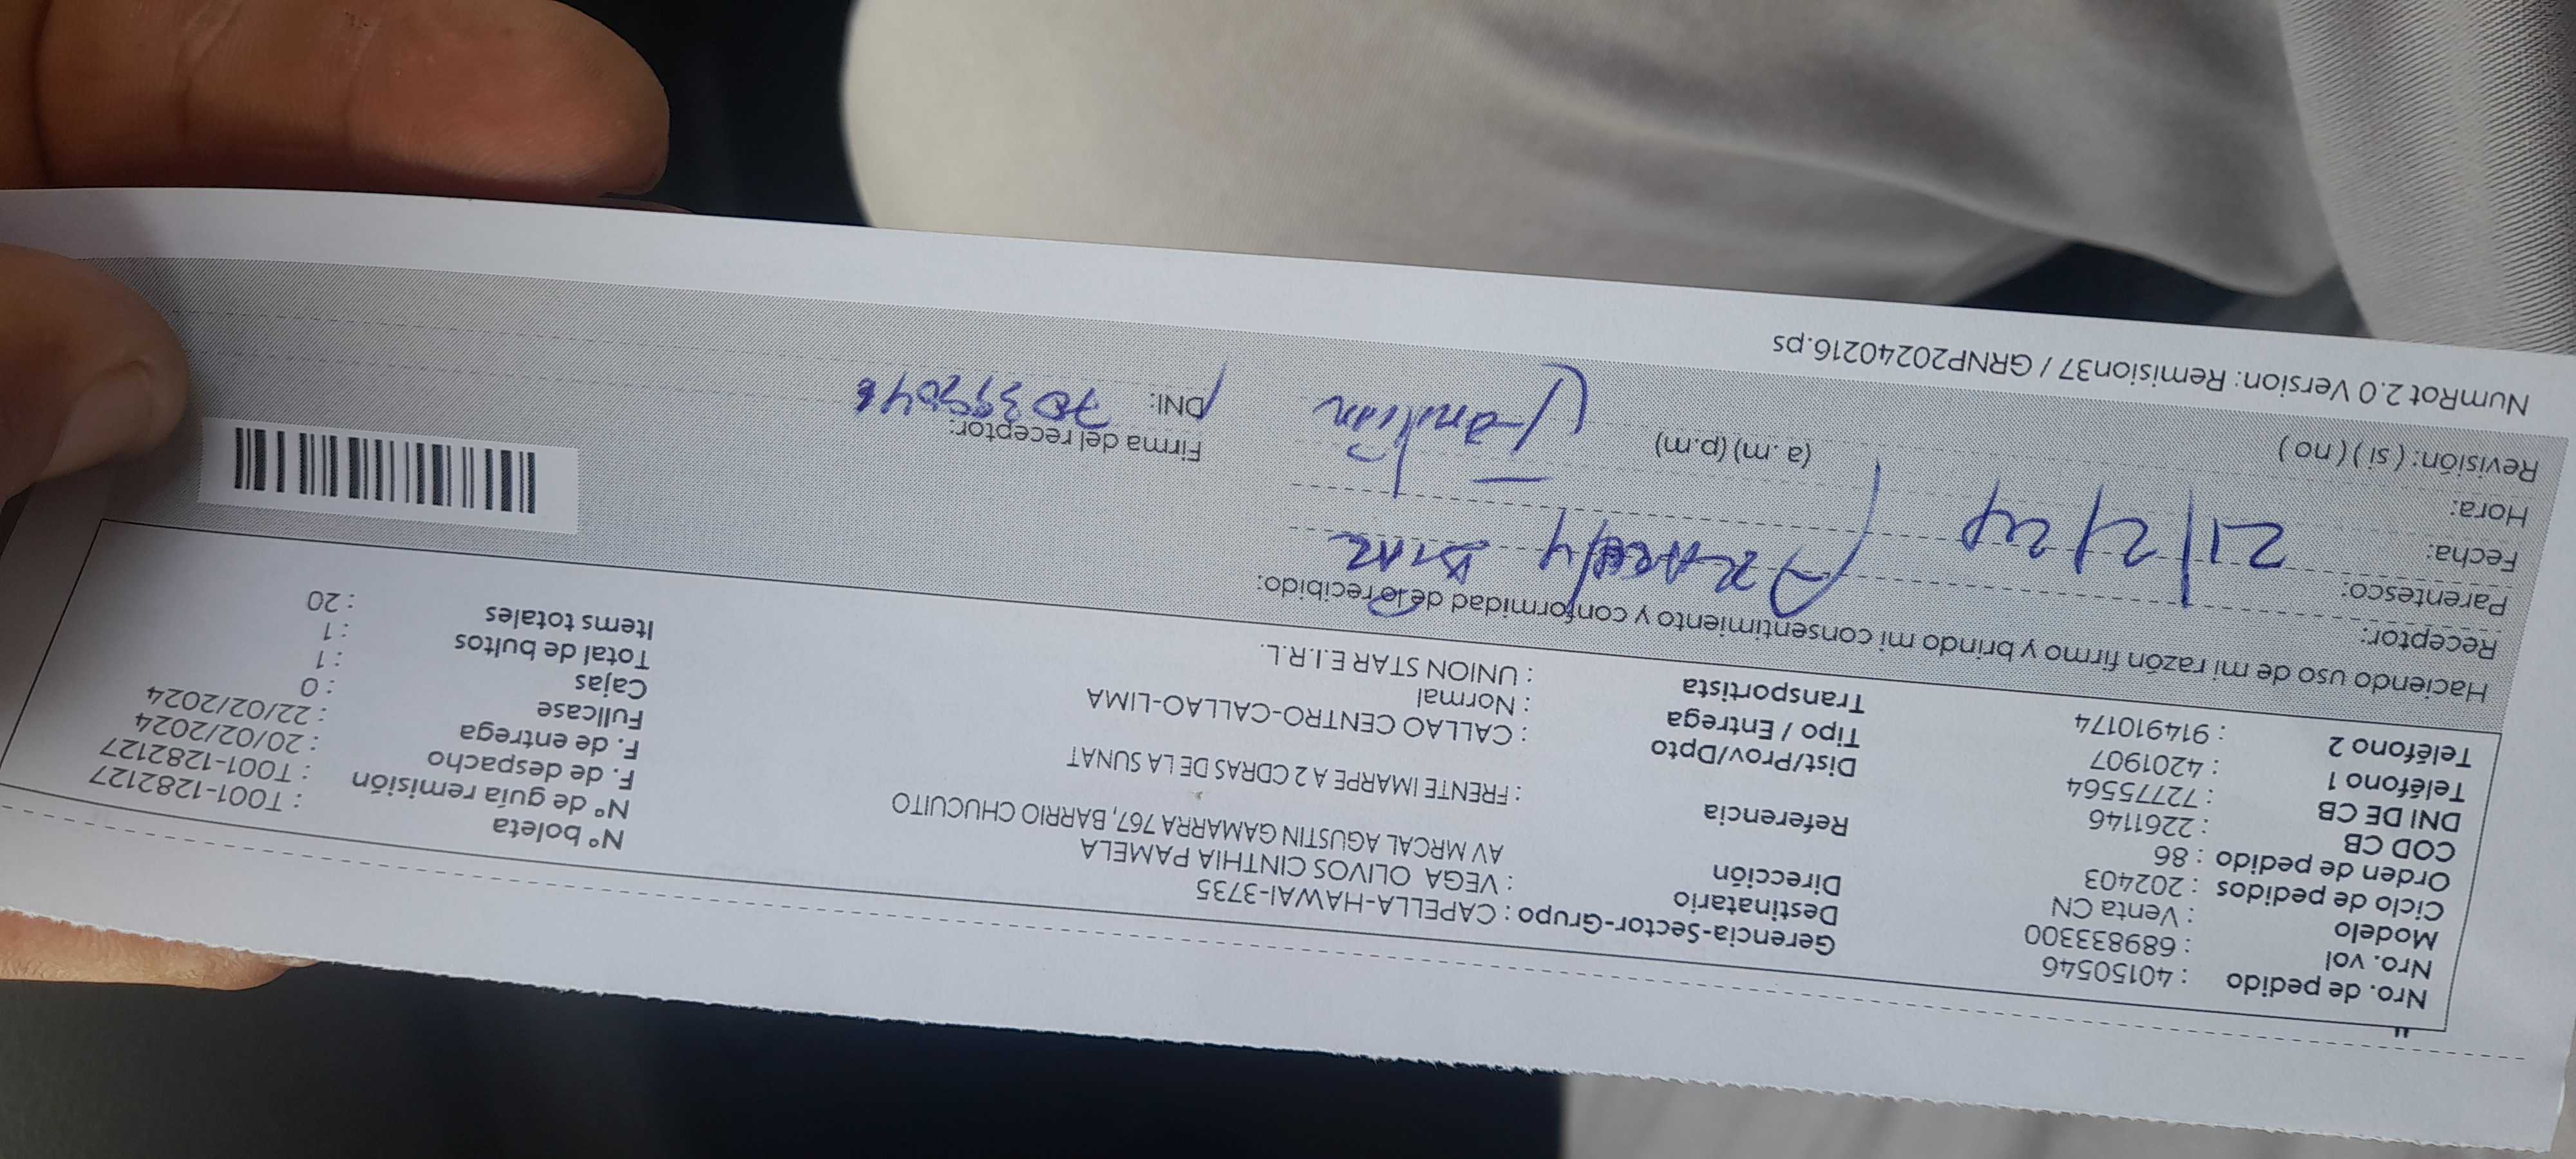 Nro. de pedido : 40150546
Nro. vol : 689833300
Modelo : Venta CN
Ciclo de pedidos : 202403
Orden de pedido : 86
COD CB : 2261146
DNI DE CB : 72775564
Teléfono 1 : 4201907
Teléfono 2 : 914910174
Gerencia-Sector-Grupo : CAPELLA-HAWAI-3735
Destinatario : VEGA OLIVOS CINTHIA PAMELA
Dirección AV MRCAL AGUSTIN GAMARRA 767, BARRIO CHUCUITO
Referencia : FRENTE IMARPE A 2 CDRAS DE LA SUNAT
Dist/Prov/Dpto : CALLAO CENTRO-CALLAO-LIMA
Tipo / Entrega : Normal
Transportista : UNION STAR E.I.R.L.
Nº boleta : T001-1282127
Nº de guía remisión : T001-1282127
F. de despacho : 20/02/2024
F. de entrega : 22/02/2024
Fullcase : 0
Cajas : 1
Total de bultos : 1
Items totales : 20
Haciendo uso de mi razón firmo y brindo mi consentimiento y conformidad de lo recibido:
Receptor:
Parentesco:
Fecha: 21/2/24
Hora: (a.m) (p.m)
Revisión: ( si ) ( no )
Firma del receptor:
DNI:
NumRot 2.0 Version: Remision37 / GRNP20240216.ps